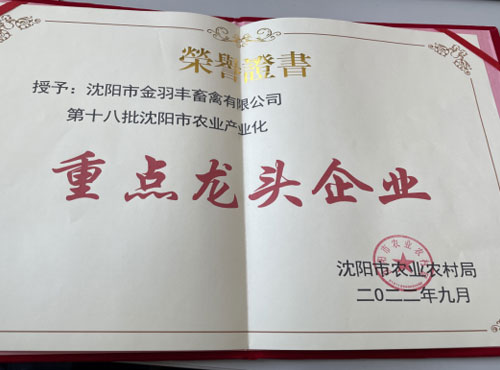 榮譽證書
授予：沈阳市金羽丰畜禽有限公司
第十八批沈阳市农业产业化
重点龙头企业
沈阳市农业农村局
二0二二年九月